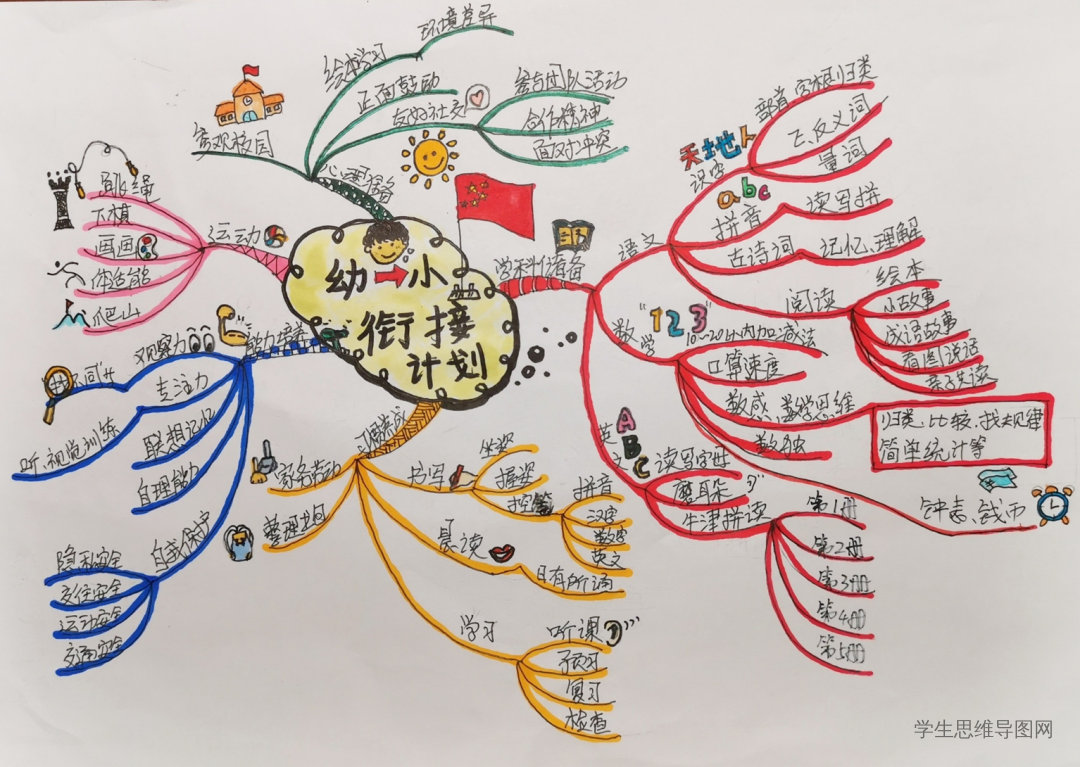 幼→小
衔接
计划
心理准备
参观校园
绘本学习
环境差异
正面鼓励
友好社交
参与团队活动
合作精神
面对冲突
学科准备
语文
天地人
识字
部首、字根归类
正、反义词
量词
abc
拼音
读写拼
古诗词
记忆、理解
阅读
绘本
小故事
成语故事
看图说话
亲子共读
数学
"123"
10~20以内加减法
口算速度
数感、数学思维
归类、比较、找规律
简单统计等
数独
钟表、钱币
英文
ABC
读写字母
磨耳朵
牛津拼读
第1册
第2册
第3册
第4册
第5册
习惯养成
书写
坐姿
握姿
控笔
拼音
汉字
数字
英文
晨读
日有所诵
学习
听课
预习
复习
检查
家务劳动
整理书包
能力培养
观察力
找不同
专注力
听、视觉训练
联想记忆
自理能力
自我保护
隐私安全
交往安全
运动安全
交通安全
运动
跳绳
下棋
画画
体适能
爬山
学生思维导图网